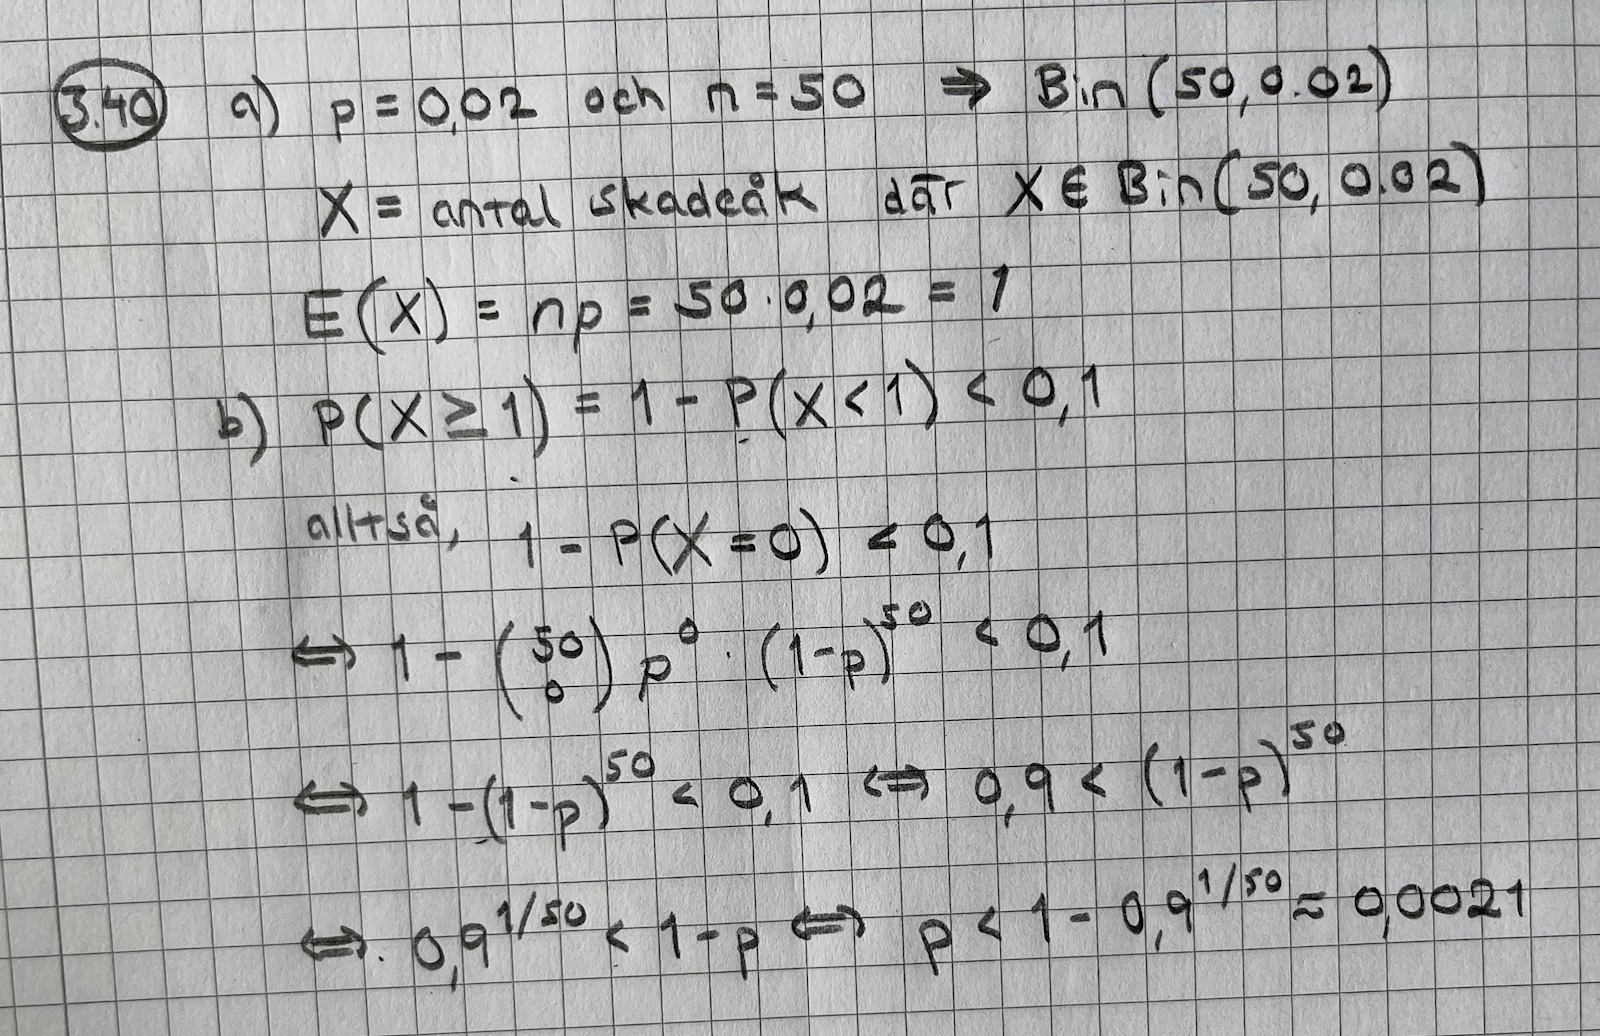 3.40 a) p = 0,02 och n = 50 ⇒ Bin (50, 0.02)
X = antal skadeåk där X ∈ Bin(50, 0.02)
E(X) = np = 50 · 0,02 = 1
b) P(X ≥ 1) = 1 - P(X < 1) < 0,1
alltså, 1 - P(X = 0) < 0,1
⇔ 1 - (50 0) p^0 · (1-p)^50 < 0,1
⇔ 1 - (1-p)^50 < 0,1 ⇔ 0,9 < (1-p)^50
⇔ 0,9^1/50 < 1 - p ⇔ p < 1 - 0,9^1/50 ≈ 0,0021